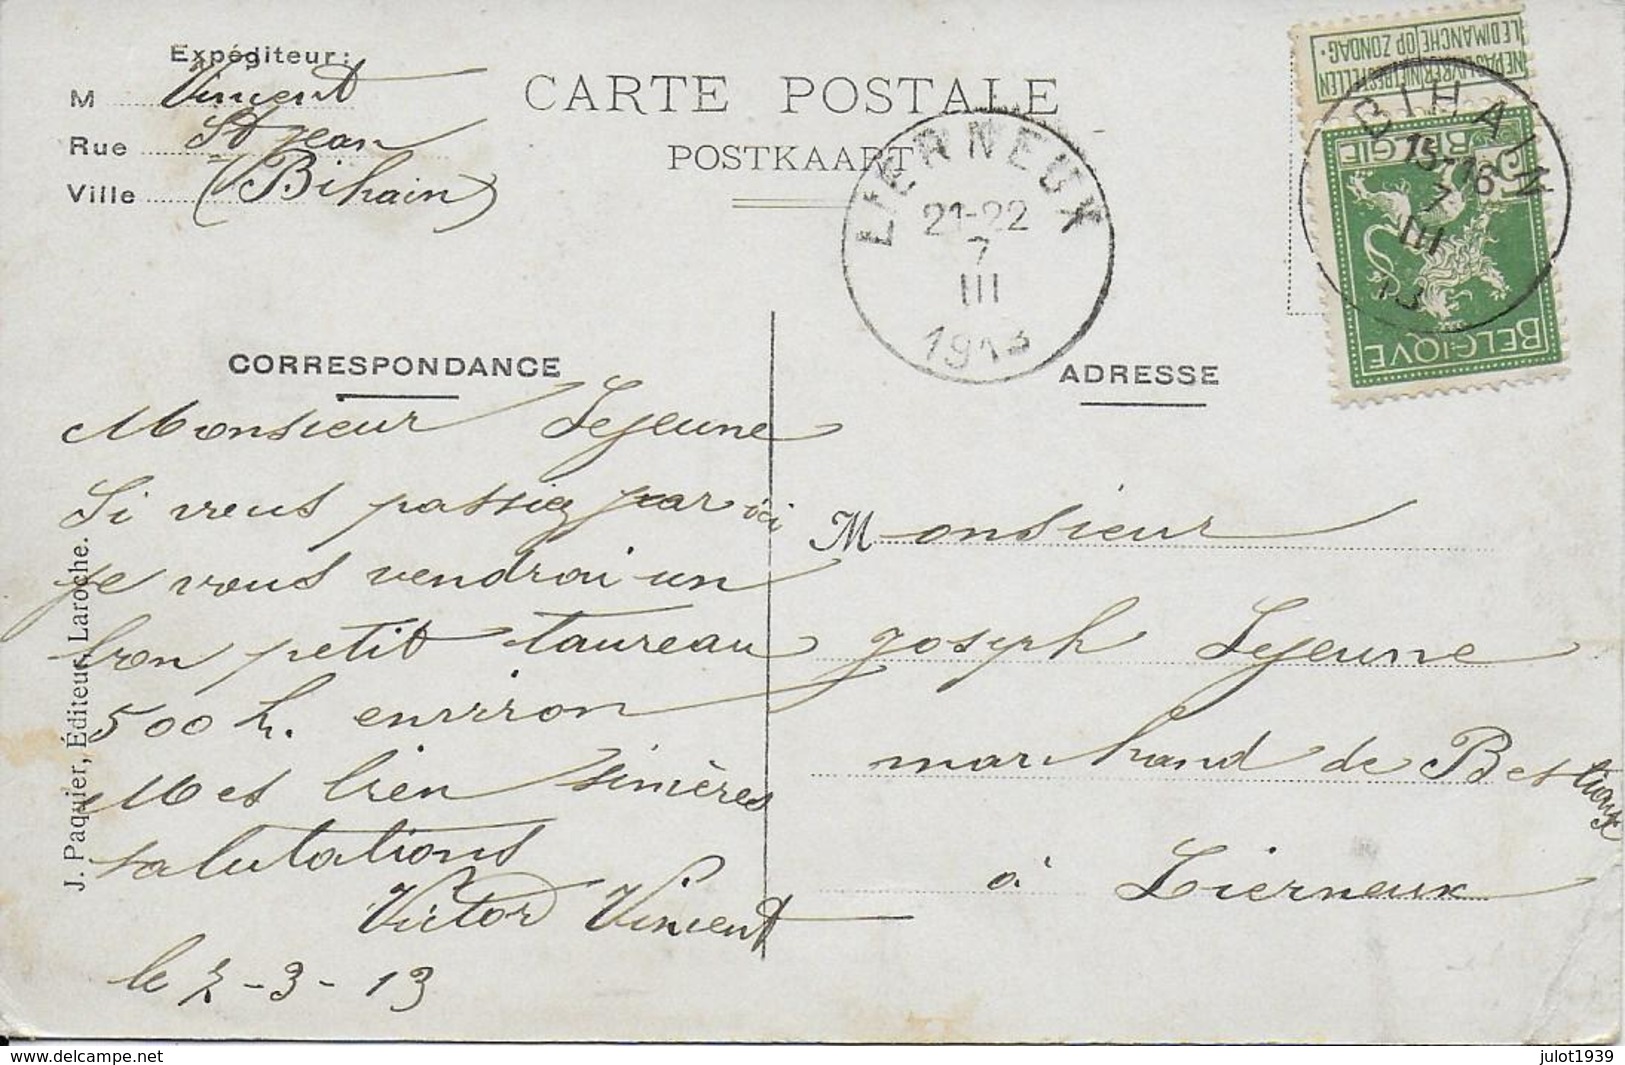 Expéditeur:
M Vincent
Rue St Jean
Ville (Bihain)
CARTE POSTALE
POSTKAART
LIERNEUX
21-22
7
III
1913
NE PAS LIVRER NIET BESTELLEN
LE DIMANCHE OP ZONDAG.
BIHAIN
15-16
7
III
13
5 BELGIË 5
BELGIQUE
CORRESPONDANCE
Monsieur Lejeune
Si vous passiez par ici
je vous vendrai un
bon petit taureau
500 k. environ
Mes bien sincères
salutations
Victor Vincent
le 7-3-13
ADRESSE
Monsieur
Joseph Lejeune
marchand de Bestiaux
à Lierneux
J. Paquier, Éditeur, Laroche.
www.delcampe.net
julot1939